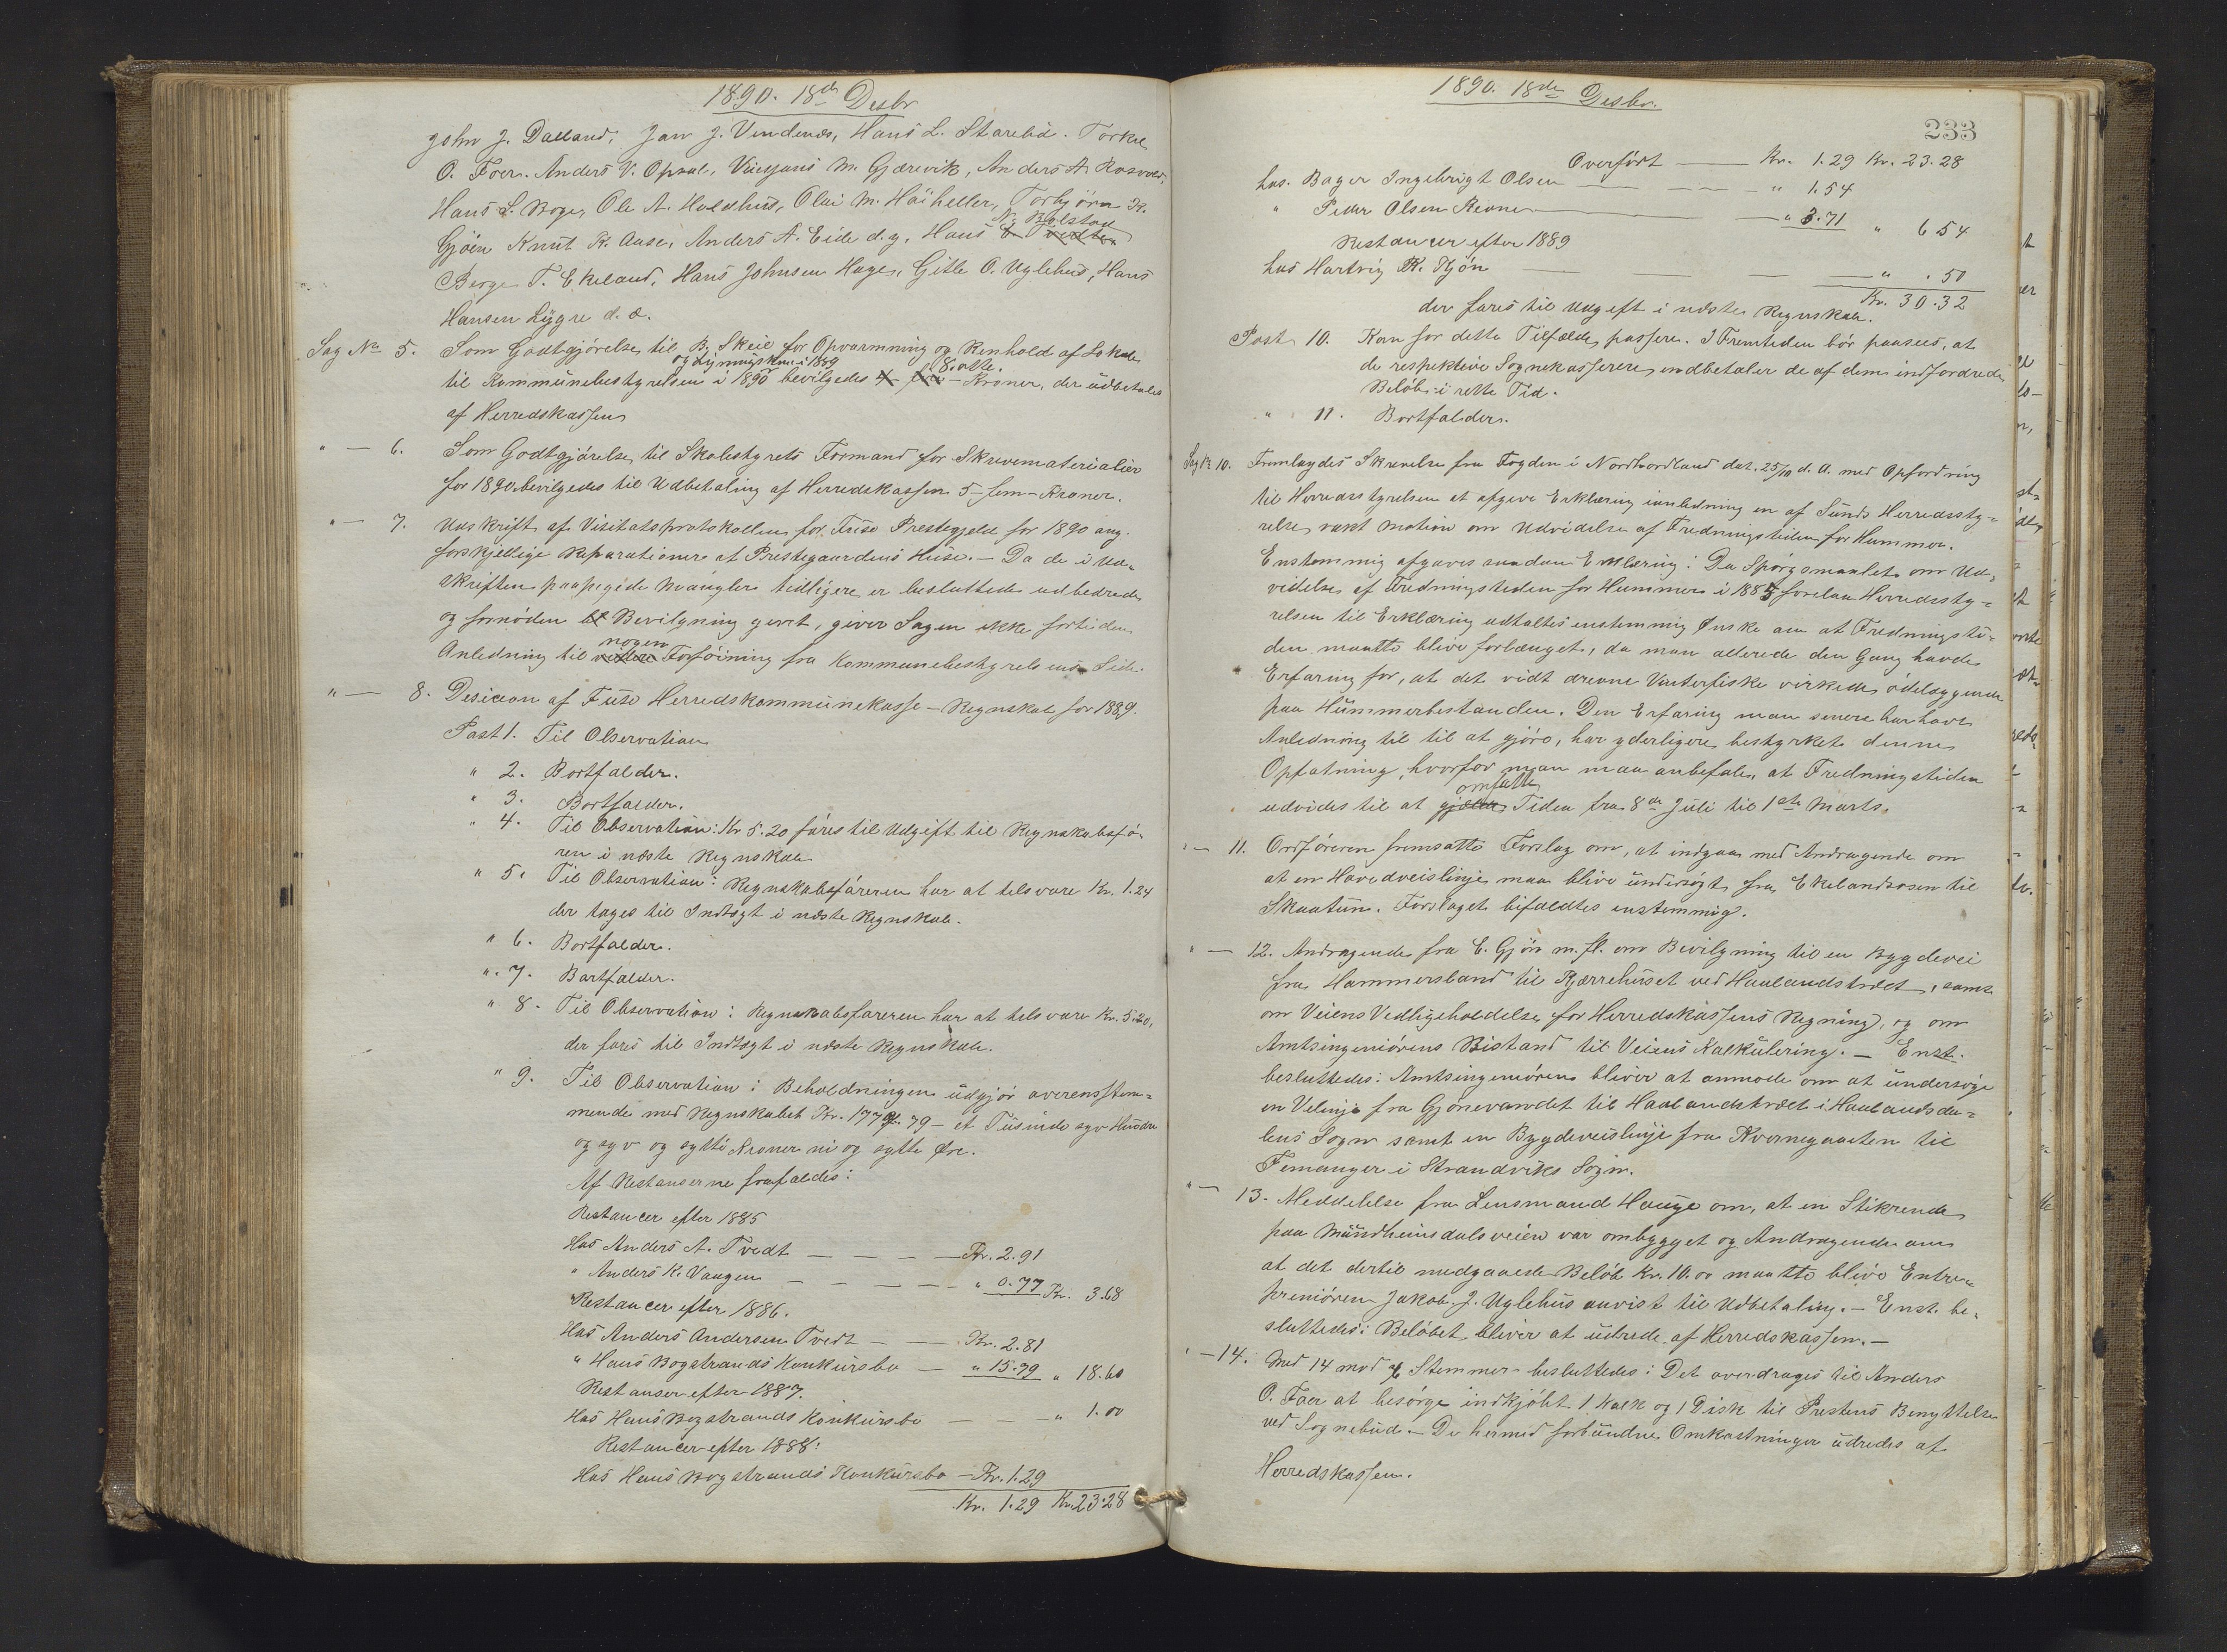 1890. 18de Desbr
John J. Dalland, Jan J. Vindenes, Hans L. Skarelid. Torkel
O. Foer. Anders V. Opsal, Vinjans M. Gjærevik, Anders A. Rosvold,
Hans L. Boge, Ole A. Holdhus, Olai M. Höiheller, Torbjörn K.
N. Bolstad
Gjöen Knut K. Aase, Anders A. Eide d.y, Hans
Berge T. Ekeland, Hans Johnsen Hage, Gitle O. Uglehus, Hans
Hansen Lygre d. æ.
Sag No 5. Som Godtgjörelse til B. Skeie for Opvarmning og Renhold af Lokale
og Ligningskom. i 1889 8. otte.
til Kommunebestyrelsen i 1890 bevilgedes - Kroner, der udbetales
af Herredskassen
" — 6. Som Godtgjörelse til Skolestyrets Formand for Skrivematerialier
for 1890 bevilgedes til Udbetaling af Herredskassen 5 - fem - Kroner.
" — 7. Udskrift af Visitatsprotokollen for Fuse Prestegjeld for 1890 ang.
forskjellige Reparationer at Prestegaardens Huse. — Da de i Ud-
skriften paapegede Mangler tidligere er besluttede udbedrede
og fornöden Bevilgning gjort, giver Sagen ikke fortiden
nogen
Anledning til Forföining fra Kommunebestyrelsens Side.
" — 8. Desicion af Fuse Herredskommunekasse - Regnskab for 1889.
Post 1. Til Observation
" 2. Bortfalder.
" 3. Bortfalder.
" 4. Til Observation: Kr 5.20 föres til Udgift til Regnskabsfö-
ren i næste Regnskab
" 5. Til Observation: Regnskabsföreren har at tilsvare Kr. 1.24
der tages til Indtægt i næste Regnskab.
" 6. Bortfalder.
" 7. Bortfalder.
" 8. Til Observation: Regnskabsföreren har at tilsvare Kr. 5.20,
der föres til Indtægt i næste Regnskab.
" 9. Til Observation: Beholdningen udgjör overensstem-
mende med Regnskabet Kr. 1777.79 - et Tusinde syv Hundre
og syv og sytti Kroner ni og sytti Öre.
Af Restanserne frafaldes:
Restancer efter 1885
Hos Anders A. Tvedt — — — — Kr. 2.91
" Anders K. Vangen — — — — — " 0.77 Kr. 3.68
Restancer efter 1886.
Hos Anders Andersen Tvedt — — Kr. 2.81
" Hans Bogstrands Konkursbo — " 15.79 " 18.60
Restanser efter 1887.
Hos Hans Bogstrands Konkursbo — — " 1.00
Restancer efter 1888:
Hos Hans Bogstrands Konkursbo — Kr. 1.29
Kr. 1.29 Kr. 23.28
1890. 18de Desbr.
233
Overfört — Kr. 1.29 Kr. 23.28
hos. Bager Ingebrigt Olsen — — — " 1.54
" Peder Olsen Revne — " 3.71 " 6 54
Restancer efter 1889
hos Hartvig K. Gjön — — — " . 50
Kr. 30.32
der föres til Udgift i næste Regnskab.
Post 10. Kan for dette Tilfælde passere. I Fremtiden bör paasees, at
de respektive Sognekasserere indbetaler de af dem indfordrede
Belöb i rette Tid.
" 11. Bortfalder.
Sag No 10. Fremlagdes Skrivelse fra Fogden i Nordhordland dat. 25/10 d. A. med Opfordring
til Herredsstyrelsen at afgive Erklæring ianledning en af Sunds Herredssty-
relse vakt Motion om Udvidelse af Fredningstiden for Hummer.
Enstemmig afgaves saadan Erklæring: Da Spörgsmaalet om Ud-
videlse af Fredningstiden for Hummer i 1885 forelaa Herredssty-
relsen til Erklæring udtaltes enstemmig Önske om at Fredningsti-
den maatte blive forlænget, da man allerede den Gang havde
Erfaring for, at det vidt drevne Vinterfiske virkede ödelæggende
paa Hummerbestanden. Den Erfaring man senere har havt
Anledning til til at gjöre, har yderligere bestyrket denne
Opfatning, hvorfor man maa anbefale, at Fredningstiden
omfatte
udvides til at Tiden fra 8de Juli til 1ste Marts.
" — 11. Ordföreren fremsatte Forslag om, at indgaa med Andragende om
at en Hovedveislinje maa blive undersögt fra Ekelandsosen til
Skaatun. Forslaget bifaldtes enstemmig.
" — 12. Andragende fra E. Gjön m. fl. om Bevilgning til en Bygdevei
fra Hammersland til Kjærrehuset ved Haalandstræet, samt
om Veiens Vedligeholdelse for Herredskassens Regning, og om
Amtsingeniörens Bistand til Veiens Kalkulering. — Enst.
besluttedes: Amtsingeniören bliver at anmode om at undersöge
en Veilinje fra Gjönevandet til Haalandstræet i Haalandsda-
lens Sogn samt en Bygdeveislinje fra Kvernegaaten til
Femanger i Strandviks Sogn.
" — 13. Meddelelse fra Lensmand Hauge om, at en Stikrende
paa Mundheimsdalsveien var ombygget og Andragende om
at det dertil medgaaede Belöb Kr. 10.00 maatte blive Entre-
preniören Jakob J. Uglehus anvist til Udbetaling. — Enst. be-
sluttedes: Belöbet bliver at udrede af Herredskassen. —
" — 14. Med 14 mod 6 Stemmer besluttedes: Det overdrages til Anders
O. Foer at besörge indkjöbt 1 Kalk og 1 Disk til Prestens Benyttelse
ved Sognebud. — De hermed forbundne Omkostninger udredes af
Herredskassen.